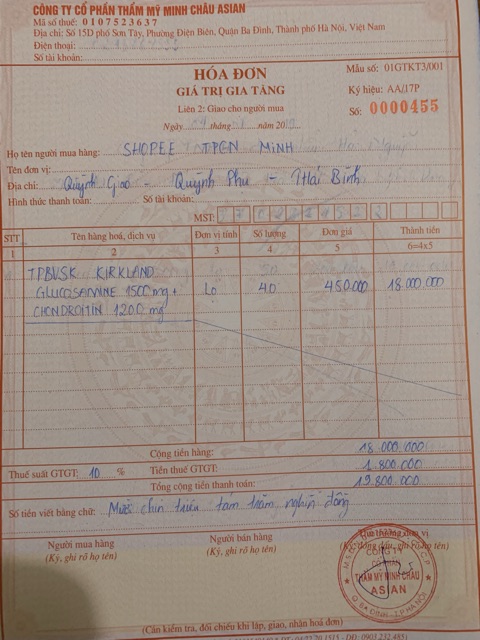 CÔNG TY CỔ PHẦN THẨM MỸ MINH CHÂU ASIAN
Mã số thuế: 0107523637
Địa chỉ: Số 15D phố Sơn Tây, Phường Điện Biên, Quận Ba Đình, Thành phố Hà Nội, Việt Nam
Điện thoại:
Số tài khoản:
HÓA ĐƠN
GIÁ TRỊ GIA TĂNG
Liên 2: Giao cho người mua
Mẫu số: 01GTKT3/001
Ký hiệu: AA/17P
Số: 0000455
Ngày tháng năm 20
Họ tên người mua hàng: SHOPEE TPCN MINH
Tên đơn vị:
Địa chỉ: Quỳnh Giao - Quỳnh Phụ - Thái Bình
Hình thức thanh toán: Số tài khoản:
MST:
STT Tên hàng hoá, dịch vụ Đơn vị tính Số lượng Đơn giá Thành tiền
1 2 3 4 5 6=4x5
TPBVSK KIRKLAND
GLUCOSAMINE 1500mg + Lọ 40 450.000 18.000.000
CHONDROITIN 1200 mg
Cộng tiền hàng: 18.000.000
Thuế suất GTGT: 10 % Tiền thuế GTGT: 1.800.000
Tổng cộng tiền thanh toán: 19.800.000
Số tiền viết bằng chữ: Mười chín triệu tám trăm nghìn đồng
Người mua hàng Người bán hàng Thủ trưởng đơn vị
(Ký, ghi rõ họ tên) (Ký, ghi rõ họ tên) (Ký, đóng dấu, ghi rõ họ tên)
CÔNG TY
CỔ PHẦN
THẨM MỸ MINH CHÂU
ASIAN
Q. BA ĐÌNH - T.P HÀ NỘI
(Cần kiểm tra, đối chiếu khi lập, giao, nhận hoá đơn)